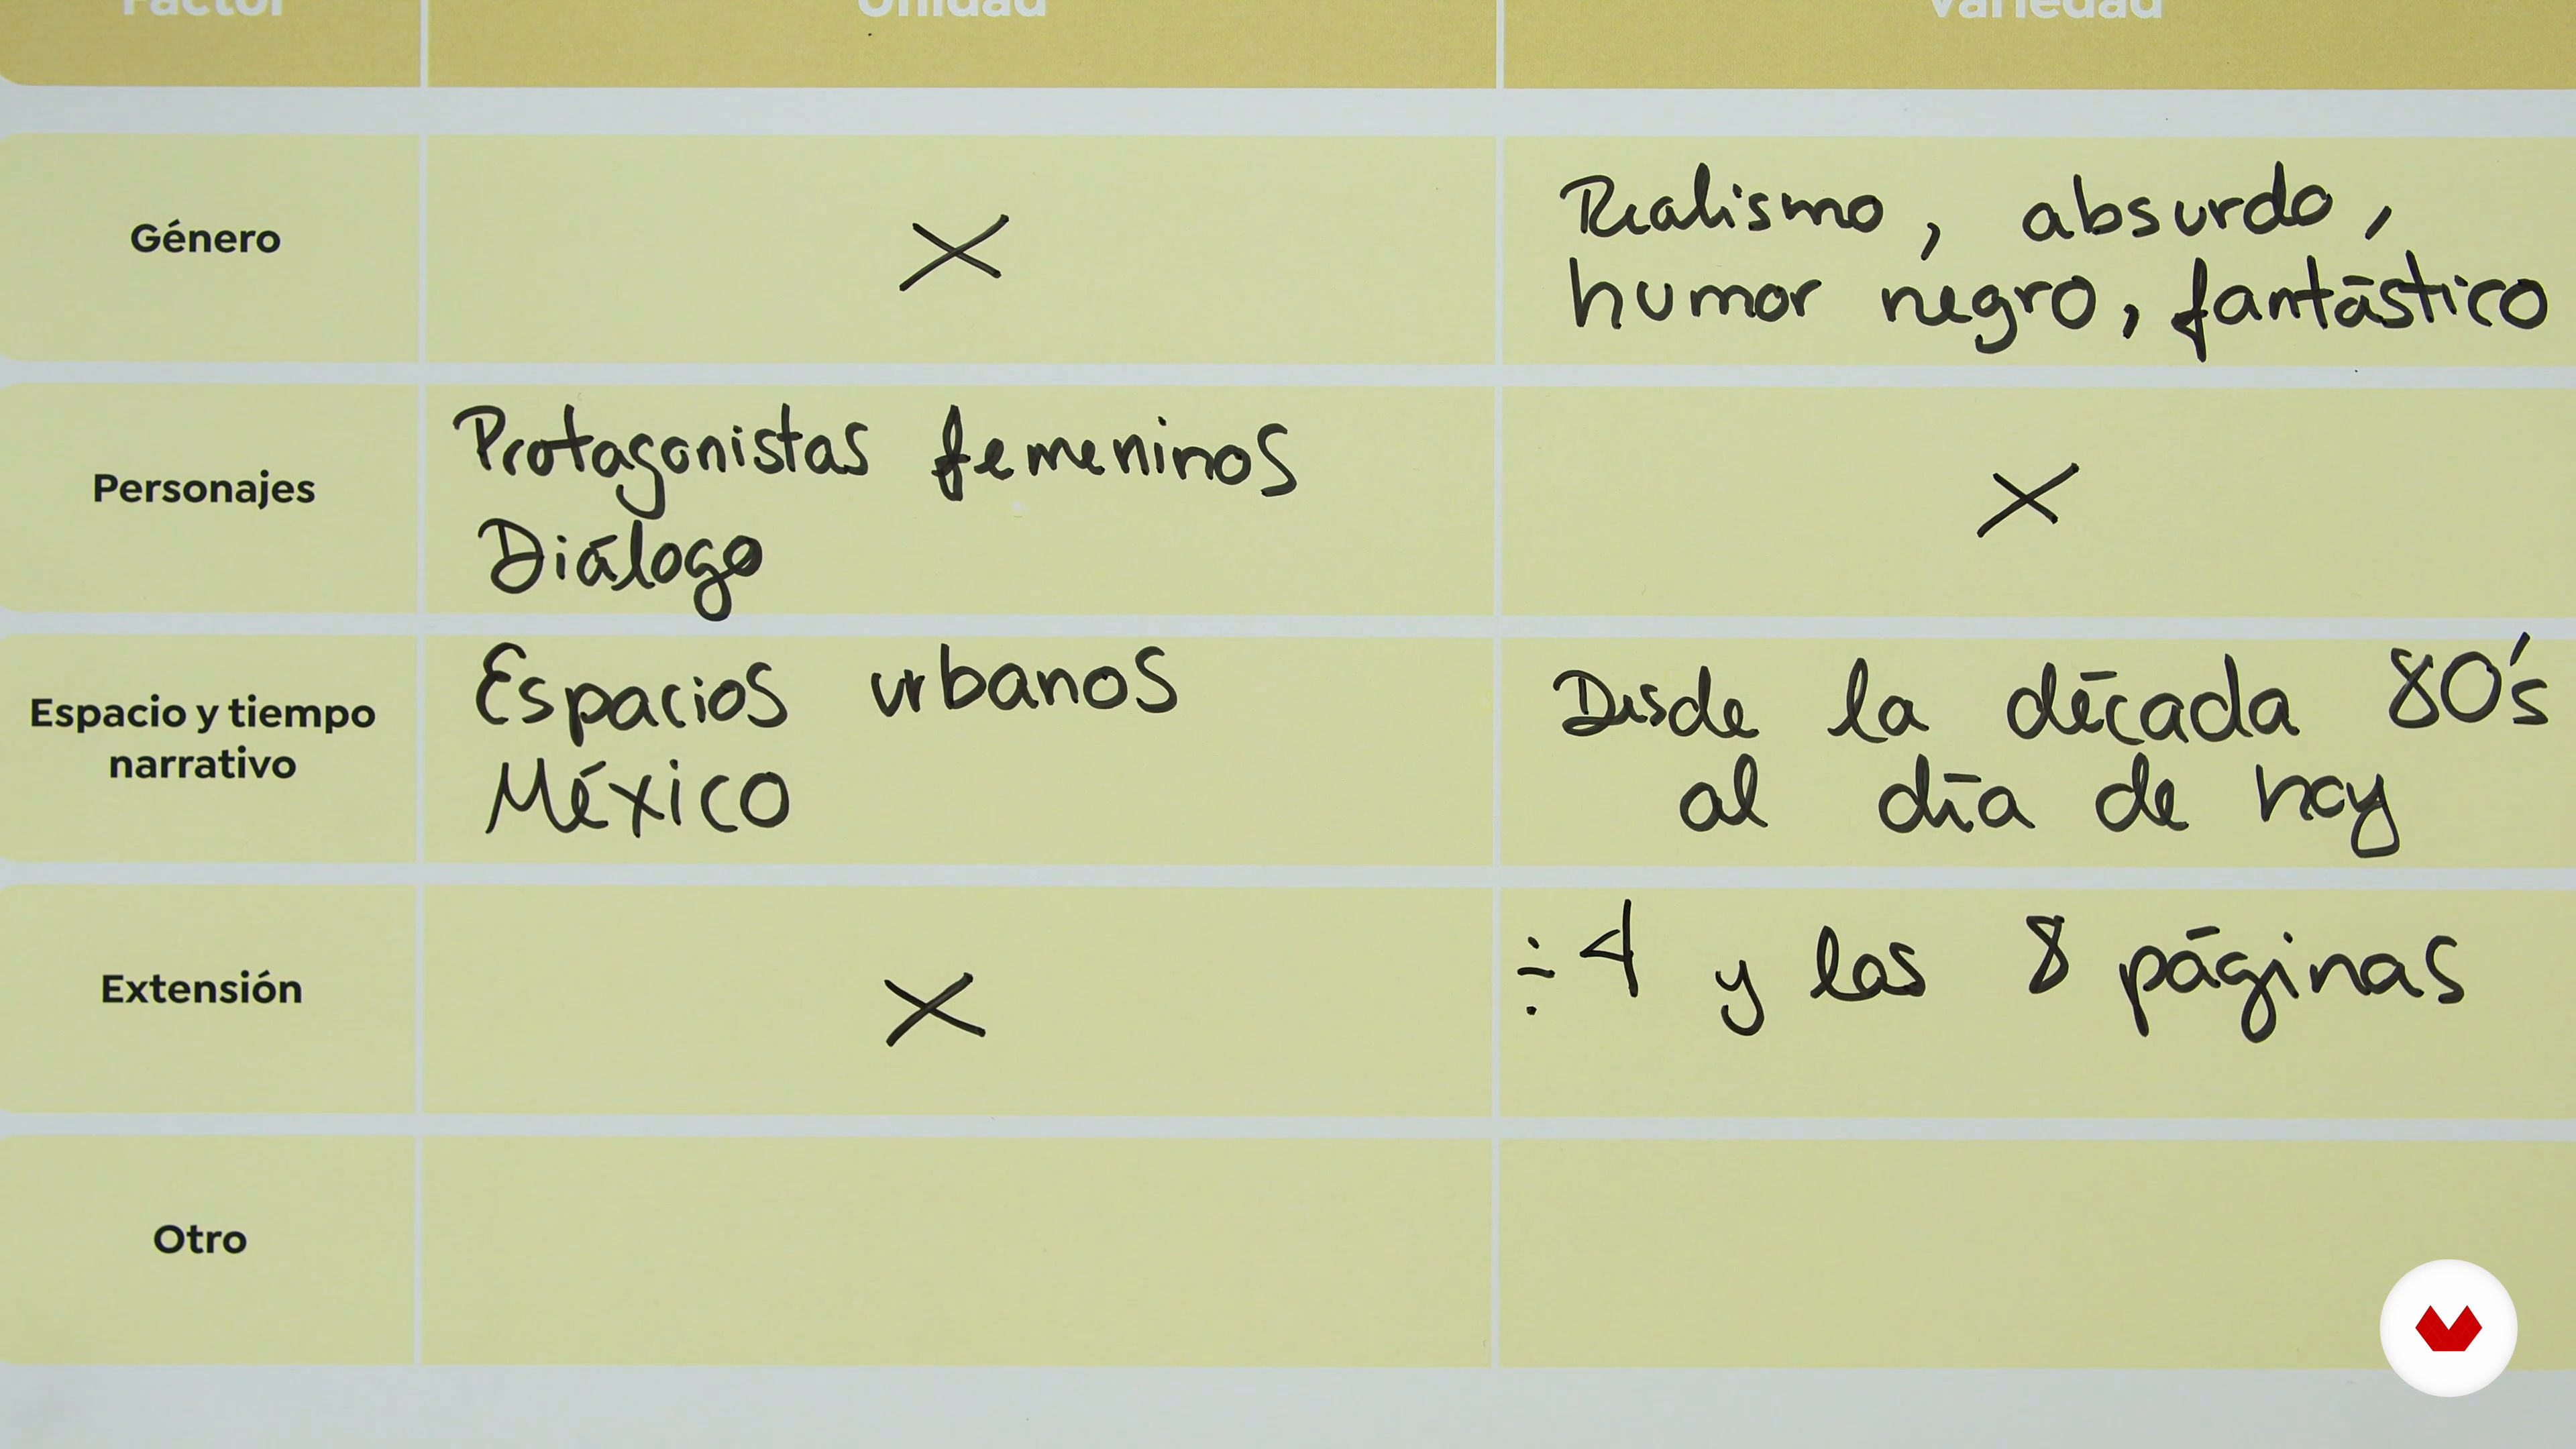 Factor Unidad Variedad
Género
X
Realismo, absurdo,
humor negro, fantástico
Personajes
Protagonistas femeninos
Diálogo
X
Espacio y tiempo
narrativo
Espacios urbanos
México
Desde la década 80's
al día de hoy
Extensión
X
÷ 4 y las 8 páginas
Otro